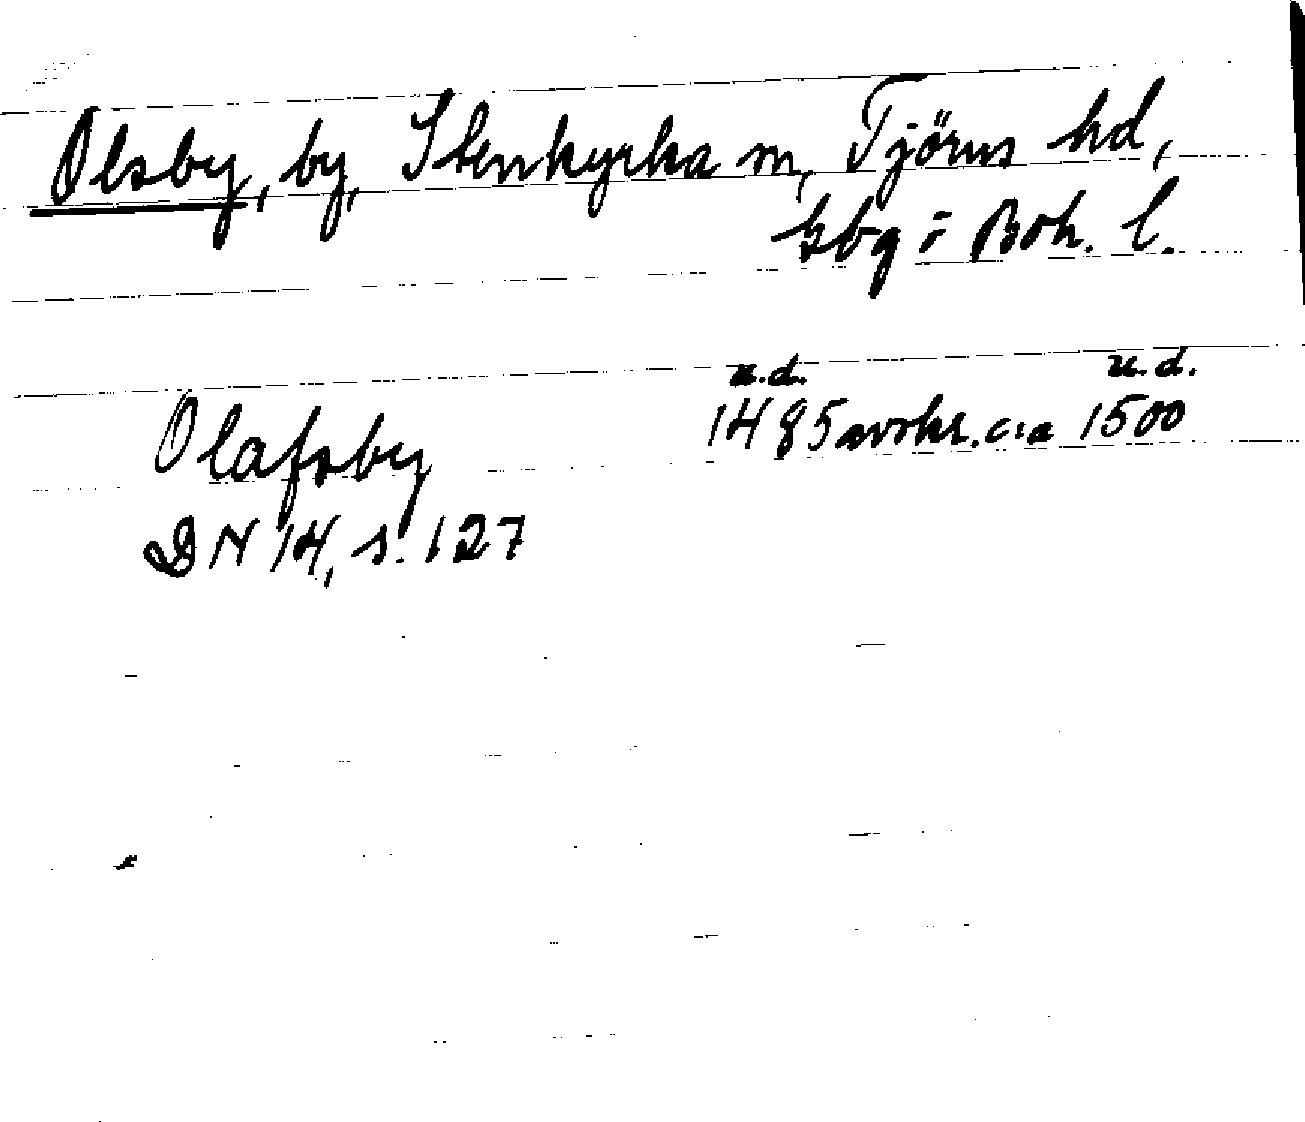 Olsby, by, Stenkyrka sn, Tjörns hd,
Gbg o Boh. l.
u.d. u.d.
Olafsby 1485 avskr. c:a 1500
DN 14, s. 127